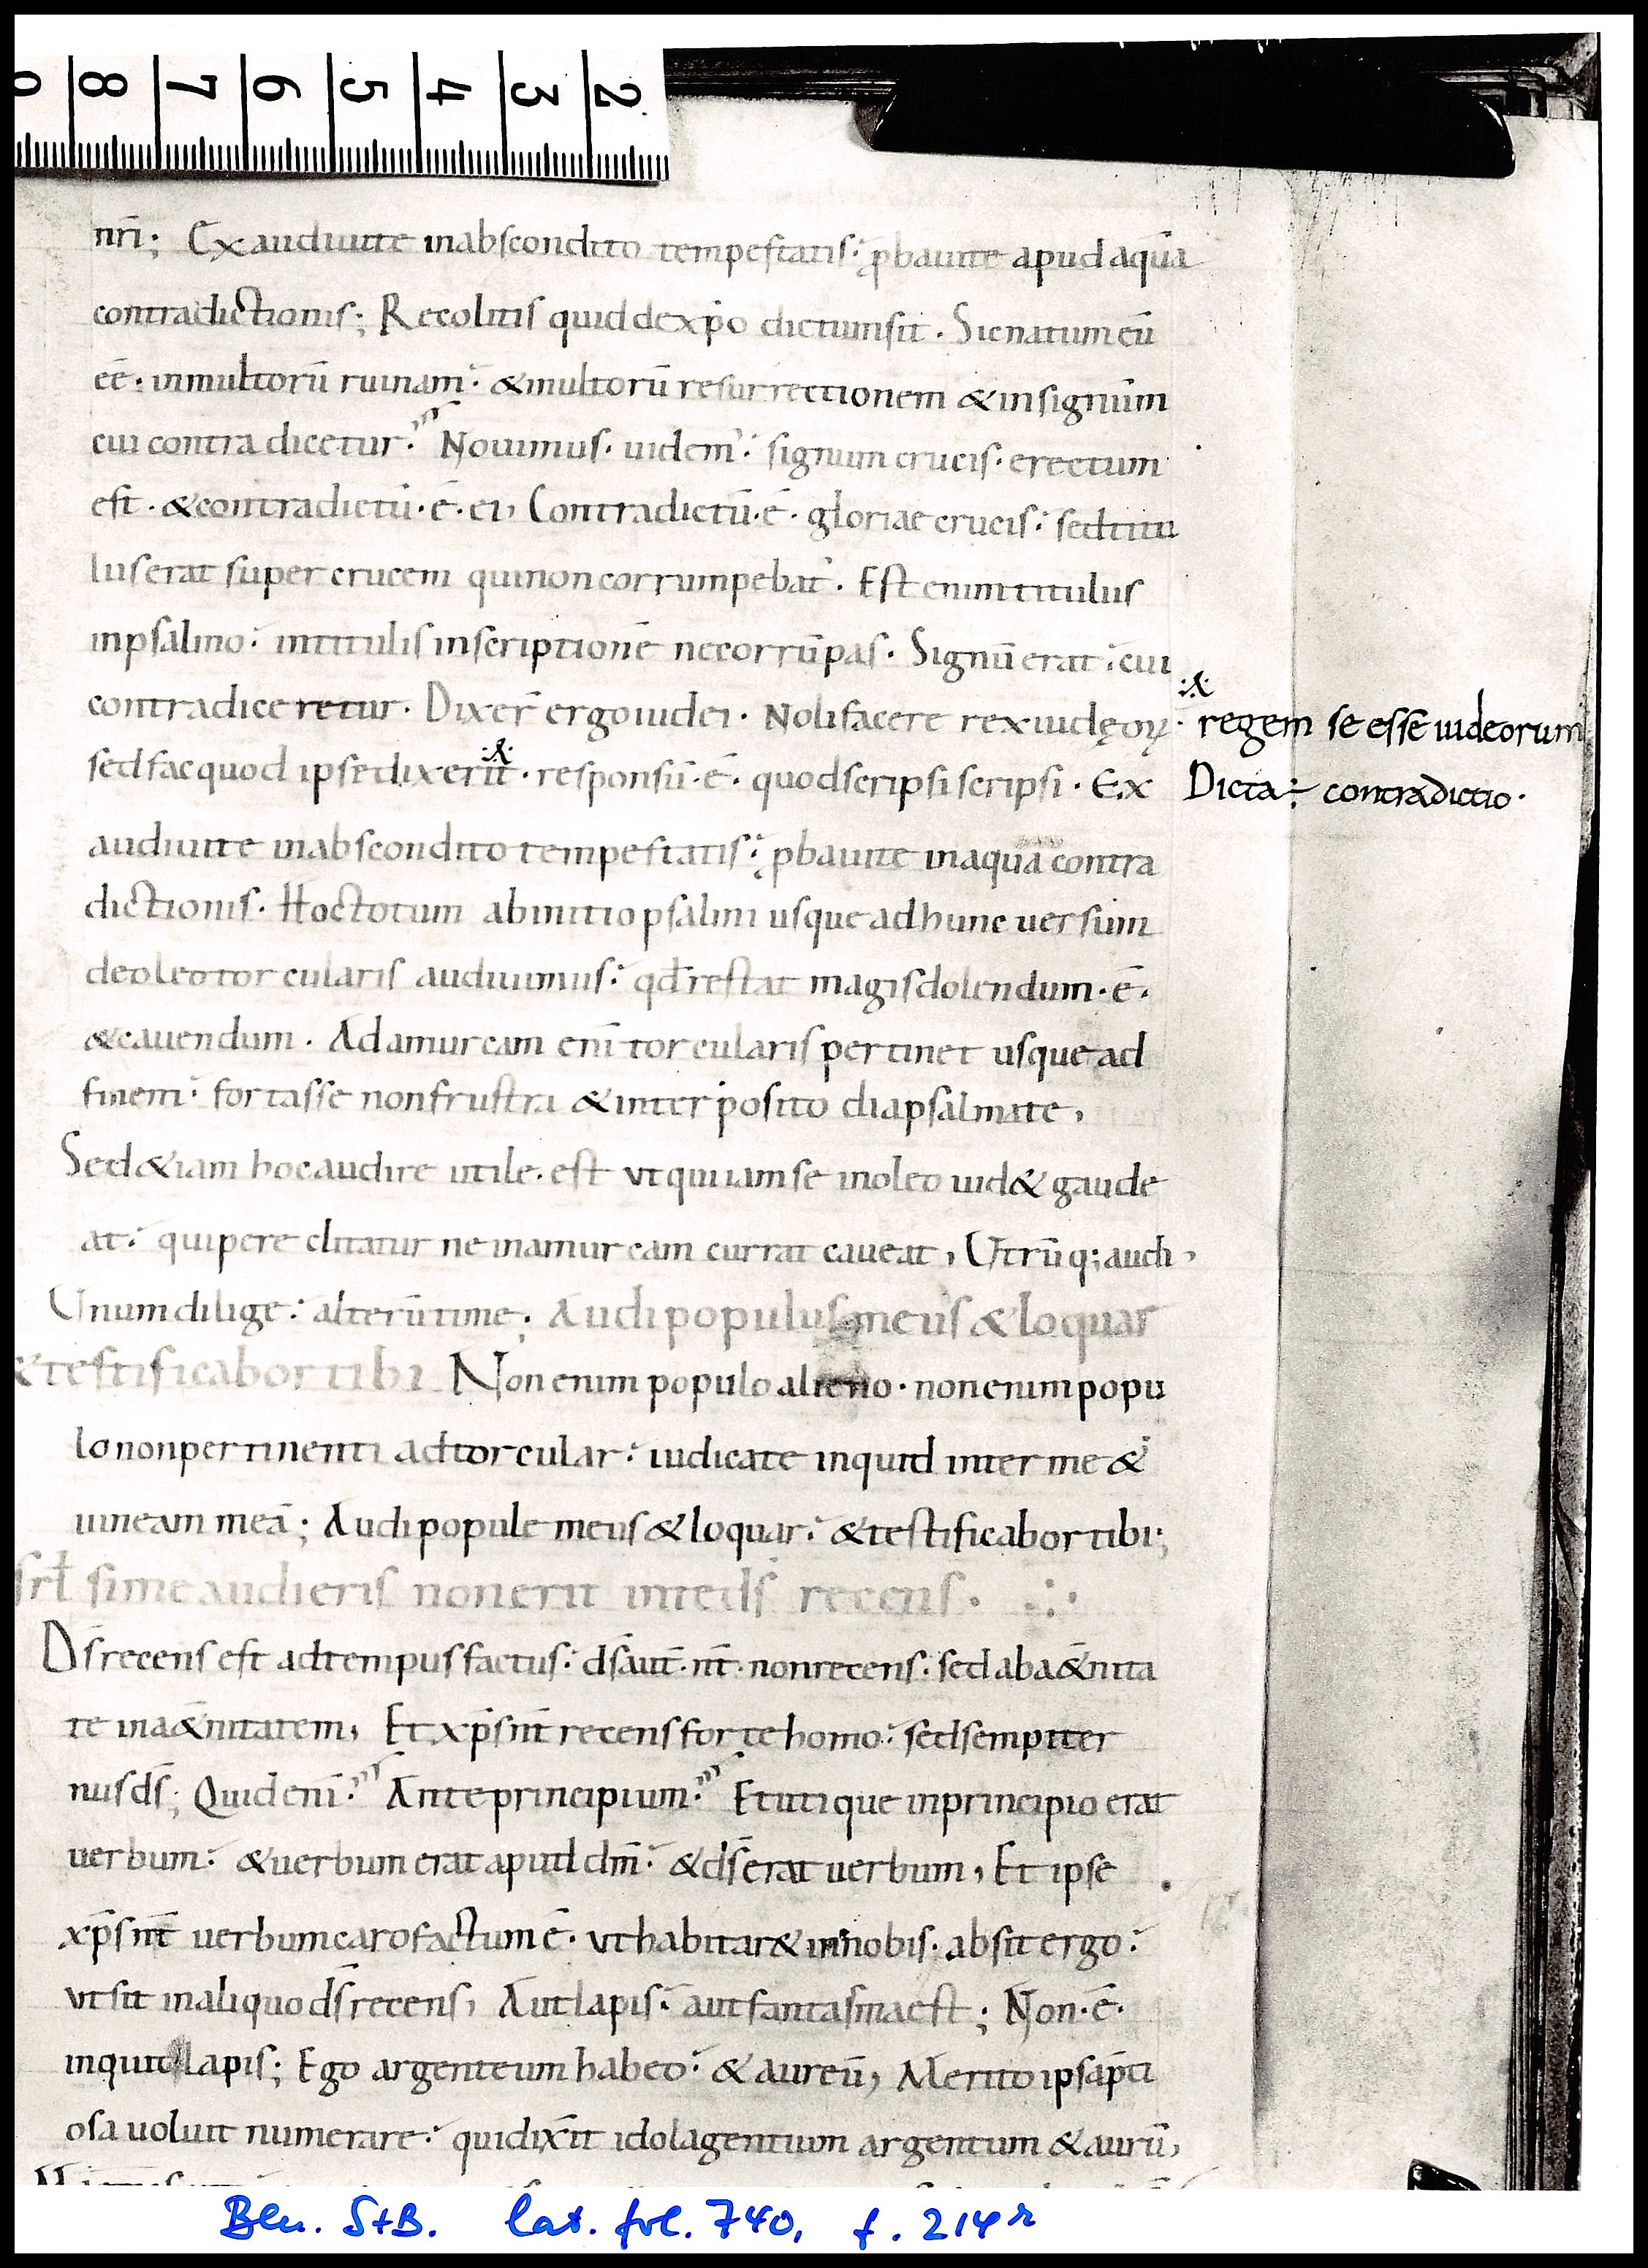 8 7 6 5 4 3 2
nr̄i; Exaudiui te in abscondito tempestatis: ꝓbaui te apud aquā
contradictionis; Recolitis quid de xp̄o dictum sit. Sic natum eū
eē. in multorū ruinam: & multorū resurrectionem & in signum
cui contradicetur. Nouimus. uidem᾽: signum crucis. erectum
est. & contradictū.ē. ei, Contradictū.ē. gloriae crucis: sed titu
lus erat super crucem qui non corrumpebat᾽. Est enim titulus
in psalmo: in titulis inscriptionē ne corrūpas. Signū erat: cui
contradiceretur. Dixer̄ ergo iudei. Noli facere rex iudęoꝝ. regem se esse iudeorum
sed fac quod ipse dixerit. responsū.ē. quod scripsi scripsi. Ex Dicta: contradictio.
audiui te in abscondito tempestatis: ꝓbaui te in aqua contra
dictionis. Hoc totum ab initio psalmi usque ad hunc uersum
de oleo torcularis audiuimus: qd̄ restat magis dolendum.ē.
& cauendum. Ad amurcam enī torcularis pertinet usque ad
finem: fortasse non frustra & interposito diapsalmate,
Sed &iam hoc audire utile. est ut qui iam se in oleo uid& gaude
at: qui pereclitatur ne in amurcam currat caueat, Utrūq; audi,
Unum dilige: alterū time; Audi populus meus & loquar
& testificabor tibi Non enim populo alieno. non enim popu
lo non pertinenti ad torcular: iudicate inquid inter me &
uineam meā; Audi popule meus & loquar: & testificabor tibi;
srł si me audieris non erit in te ds̄ recens.
Ds̄ recens est ad tempus factus: ds̄ aut̄.nt̄. non recens. sed ab a&̄nita
te in a&̄nitatem, Et xp̄s nt̄ recens forte homo: sed sempiter
nus ds̄; Quid enī. Ante principium. Et utique in principio erat
uerbum: & uerbum erat apud dm̄: & ds̄ erat uerbum, Et ipse
xp̄s nt̄ uerbum caro factum ē. ut habitar& in nobis. absit ergo:
ut sit in aliquo ds̄ recens, Aut lapis: aut fantasma est; Non.ē.
inquit lapis; Ego argenteum habeo: & aureū, Merito ipsa p̄ti
osa uoluit numerare: qui dix̄it idola gentium argentum & aurū,
Bln. StB. lat. fol. 740, f. 214r